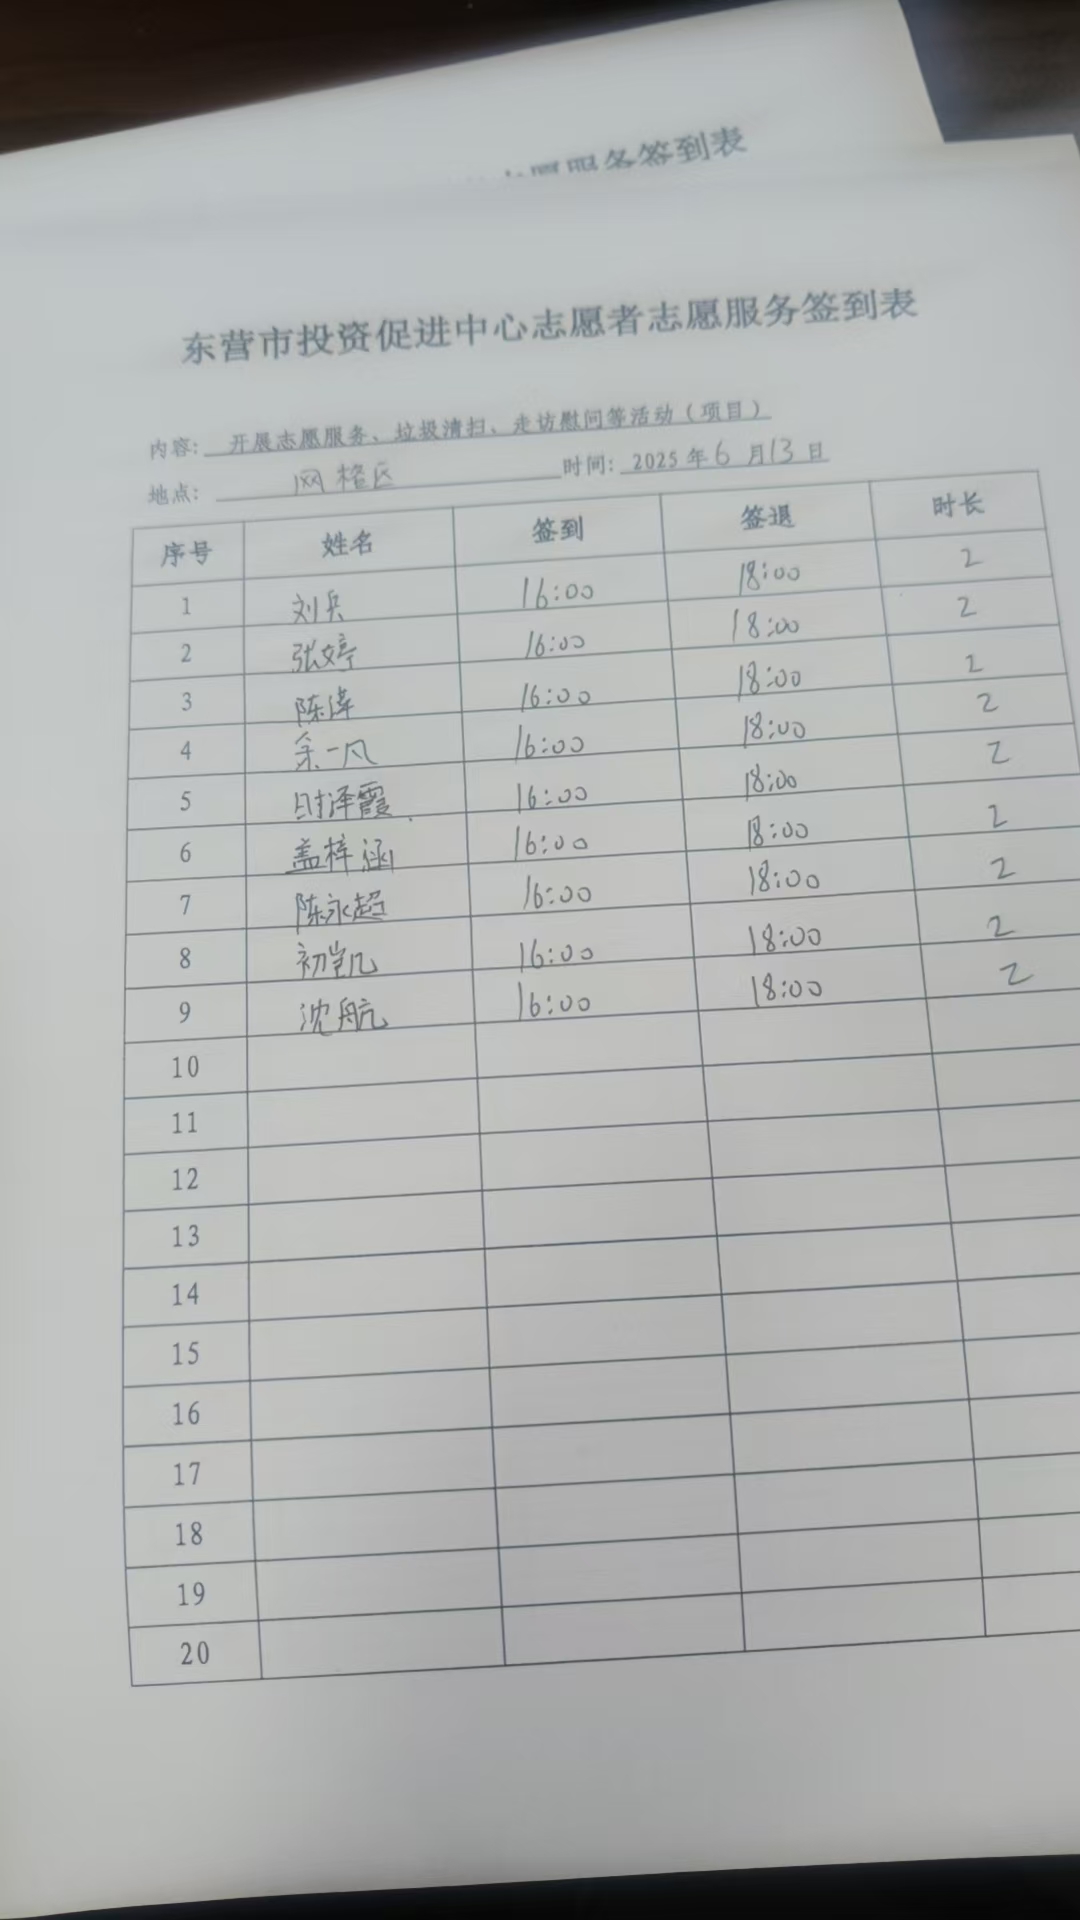 服务签到表
东营市投资促进中心志愿者志愿服务签到表
内容: 开展志愿服务、垃圾清扫、走访慰问等活动（项目）
地点: 网格区 时间: 2025年6月13日
序号 姓名 签到 签退 时长
1 刘兵 16:00 18:00 2
2 张婷 16:00 18:00 2
3 陈 16:00 18:00 2
4 余一凡 16:00 18:00 2
5 时泽霞 16:00 18:00 2
6 盖梓涵 16:00 18:00 2
7 陈永超 16:00 18:00 2
8 初凯 16:00 18:00 2
9 沈航 16:00 18:00 2
10
11
12
13
14
15
16
17
18
19
20